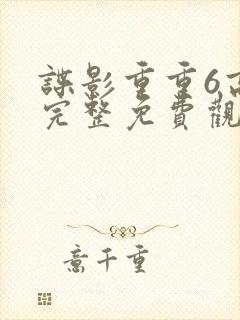 諜影重重6高
完整免費觀
意千重